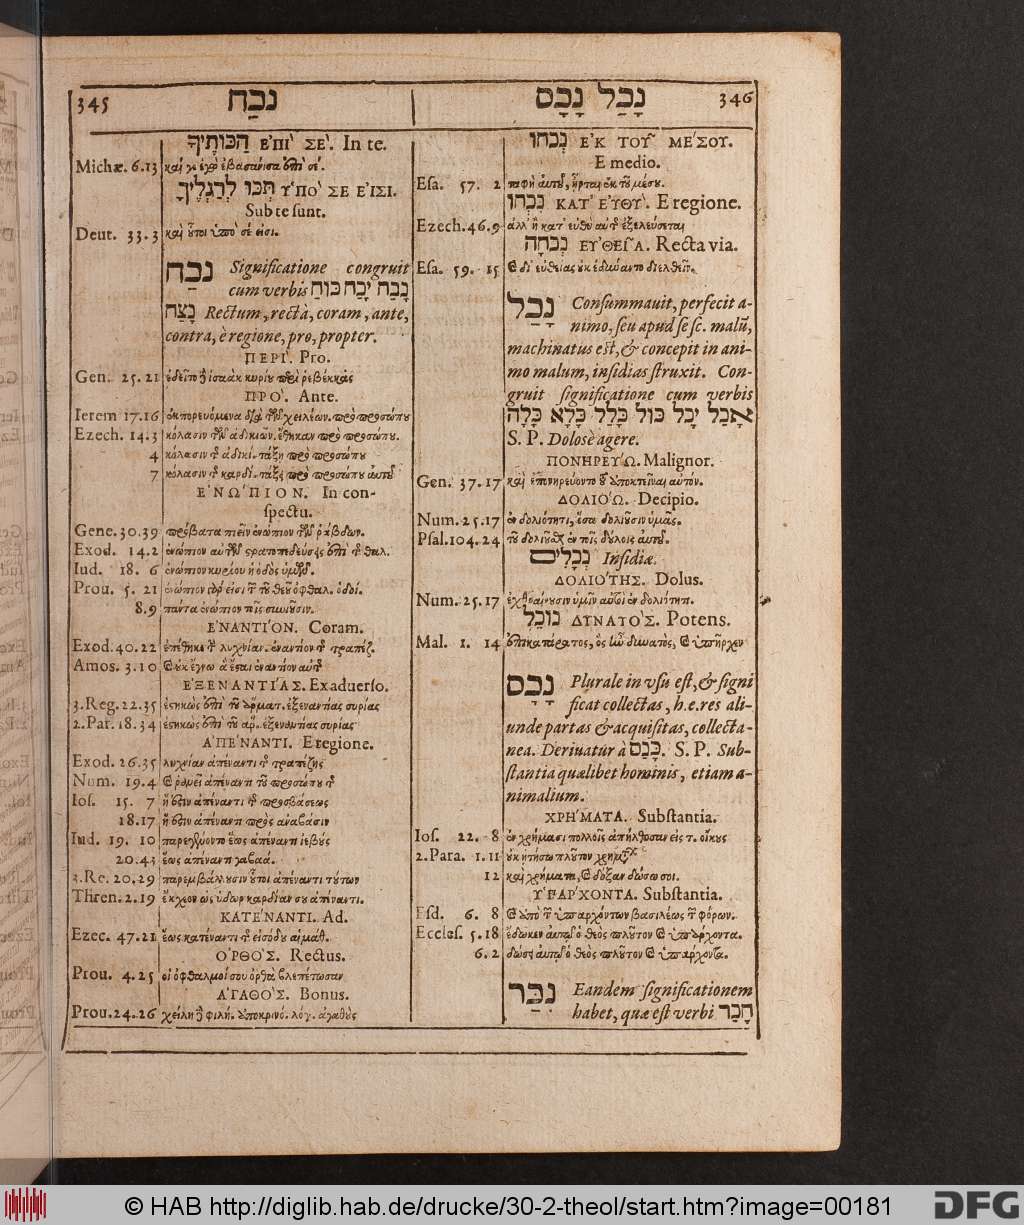 345 נכח
הַכּוֹתֶיךָ ἘΠῚ ΣῈ. In te.
Michæ. 6.13 καί γε ἐγὼ ἐβασάνισα ἐπὶ σέ.
תֻּכּוּ לְרַגְלֶיךָ ὙΠῸ ΣΕ ΕἸΣΙ.
Sub te sunt.
Deut. 33.3 καὶ οὗτοι ὑπὸ σέ εἰσι.
נכח Significatione congruit
cum verbis נָכַח יָכַח כּוּחַ
נָצַח Rectum, rectà, coram, ante,
contra, è regione, pro, propter.
ΠΕΡΊ. Pro.
Gen. 25.21 ἐδεῖτο ἰσαὰκ κυρίου περὶ ῥεβέκκας
ΠΡῸ. Ante.
Ierem 17.16 ἐκπορευόμενα διὰ τῶν χειλέων. πρὸ προσώπου
Ezech. 14.3 κόλασιν τῶν ἀδικιῶν. ἔθηκαν πρὸ προσώπου.
4 κόλασιν τ ἀδικί. τάξῃ πρὸ προσώπου
7 κόλασιν τ καρδί. τάξῃ πρὸ προσώπου αὐτοῦ
ἘΝΏΠΙΟΝ. In con-
spectu.
Gene. 30.39 πρόβατα πιεῖν ἐνώπιον τῶν ῥάβδων.
Exod. 14.2 ἐνώπιον αὐτῶν στρατοπεδεύσεις ἐπὶ τ θαλ.
Iud. 18. 6 ἐνώπιον κυρίου ἡ ὁδὸς ὑμῶν.
Prou. 5. 21 ἐνώπιον γάρ εἰσι τ τοῦ θεοῦ ὀφθαλ. ὁδοί.
8.9 πάντα ἐνώπιον τοῖς συνιοῦσιν.
ἘΝΑΝΤΊΟΝ. Coram.
Exod. 40.22 ἐπέθηκε τ λυχνίαν. ἐναντίον τ τραπέζ.
Amos. 3.10 καὶ οὐκ ἔγνω ἃ ἔσται ἐναντίον αὐτῆς
ἘΞΕΝΑΝΤΊΑΣ. Exaduerso.
3. Reg. 22.35 ἑστηκὼς ἐπὶ τοῦ ἅρματ. ἐξεναντίας συρίας
2. Par. 18. 34 ἑστηκὼς ἐπὶ τοῦ ἁρ. ἐξεναντίας συρίας
ἈΠΕΝΑΝΤΙ. E regione.
Exod. 26.35 λυχνίαν ἀπέναντι τ τραπέζης
Num. 19.4 καὶ ῥανεῖ ἀπέναντι τοῦ προσώπου τ
Ios. 15. 7 ἥ ἐστιν ἀπέναντι τ προσβάσεως
18.17 ἥ ἐστιν ἀπέναντι πρὸς ἀνάβασιν
Iud. 19. 10 παρεγένοντο ἕως ἀπέναντι ἰεβούς
20.43 ἕως ἀπέναντι γαβαά.
3. Re. 20.29 παρεμβάλλουσιν οὗτοι ἀπέναντι τούτων
Thren. 2.19 ἔκχεον ὡς ὕδωρ καρδίαν σου ἀπέναντι.
ΚΑΤΈΝΑΝΤΙ. Ad.
Ezec. 47.21 ἕως κατέναντι τ εἰσόδου αἰμάθ.
ὈΡΘΟΣ. Rectus.
Prou. 4.25 οἱ ὀφθαλμοί σου ὀρθὰ βλεπέτωσαν
ἈΓΑΘΟΣ. Bonus.
Prou. 24.26 χείλη φιλή. ἀποκρινό. λόγ. ἀγαθούς
נָכַל נָכָס 346
נְכֹחוֹ ἘΚ ΤΟΥ͂ ΜΈΣΟΥ.
E medio.
Esa. 57. 2 ταφὴ αὐτοῦ, ἦρται ἐκ τοῦ μέσου.
נִכְחוֹ ΚΑΤ' ΕΥ̓ΘῪ. E regione.
Ezech. 46.9 ἀλλ' ἢ κατ' εὐθὺ αὐτῆς ἐξελεύσεται
נְכֹחָה ΕΥ̓ΘΕΙ͂Α. Recta via.
Esa. 59. 15 καὶ δι' εὐθείας οὐκ ἐδύναντο διελθεῖν.
נָכַל Consummauit, perfecit a-
nimo, seu apud se sc. malũ,
machinatus est, & concepit in ani-
mo malum, insidias struxit. Con-
gruit significatione cum verbis
אָכַל יָכֹל כּוּל כָּלַל כָּלָא כָּלָה
S. P. Dolosè agere.
ΠΟΝΗΡΕΥΏ. Malignor.
Gen. 37.17 καὶ ἐπονηρεύοντο τοῦ ἀποκτεῖναι αὐτόν.
ΔΟΛΙΟΏ. Decipio.
Num. 25.17 ἐν δολιότητι, ὅσα δολιοῦσιν ὑμᾶς.
Psal. 104. 24 τοῦ δολιοῦσθαι ἐν τοῖς δούλοις αὐτοῦ.
נְכָלִים Insidiæ.
ΔΟΛΙΌΤΗΣ. Dolus.
Num. 25.17 ἐχθραίνουσιν ὑμῖν αὐτοὶ ἐν δολιότητι.
נוֹכֵל ΔΥΝΑΤΟΣ. Potens.
Mal. 1. 14 ἐπικατάρατος, ὃς ἦν δυνατὸς, καὶ ὑπῆρχεν
נָכָס Plurale in vsu est, & signi
ficat collectas, h. e. res ali-
unde partas & acquisitas, collecta-
nea. Deriuatur à כָּנַס. S. P. Sub-
stantia quælibet hominis, etiam a-
nimalium.
ΧΡΉΜΑΤΑ. Substantia.
Ios. 22. 8 ἐν χρήμασι πολλοῖς ἀπήλθοσαν εἰς τ. οἴκους
2. Para. 1.11 οὐκ ᾐτήσω πλοῦτον χρημάτων
12 καὶ χρήματα, καὶ δόξαν δώσω σοι.
ὙΠΑΡΧΟΝΤΑ. Substantia.
Esd. 6. 8 καὶ ἀπὸ τ ὑπαρχόντων βασιλέως τ φόρων.
Eccles. 5.18 ἔδωκεν αὐτῷ ὁ θεὸς πλοῦτον καὶ ὑπάρχοντα.
6.2 δώσει αὐτῷ ὁ θεὸς πλοῦτον καὶ ὑπάρχοντα.
נכר Eandem significationem
habet, quæ est verbi חָכַר
© HAB http://diglib.hab.de/drucke/30-2-theol/start.htm?image=00181
DFG